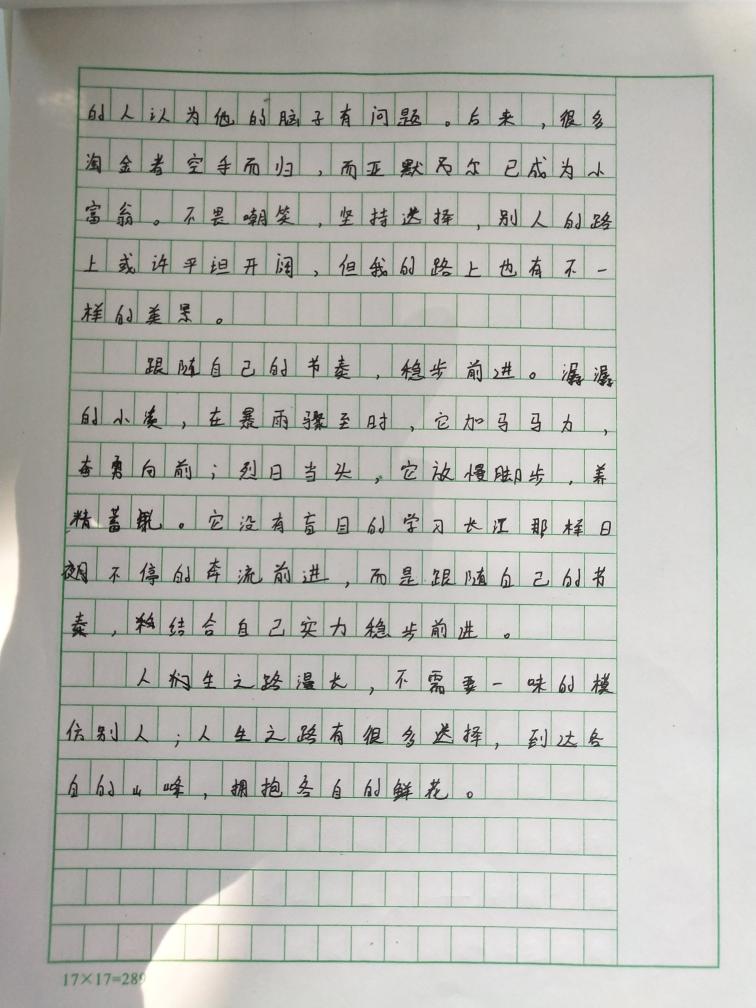 的人认为他的脑子有问题。后来，很多
淘金者空手而归，而亚默尔已成为小
富翁。不畏嘲笑，坚持选择，别人的路
上或许平坦开阔，但我的路上也有不一
样的美景。
跟随自己的节奏，稳步前进。潺潺
的小溪，在暴雨骤至时，它加马马力，
奋勇向前；烈日当头，它放慢脚步，养
精蓄锐。它没有盲目的学习长江那样日
夜不停的奔流前进，而是跟随自己的节
奏，结合自己实力稳步前进。
人们生之路漫长，不需要一味的模
仿别人；人生之路有很多选择，到达各
自的山峰，拥抱各自的鲜花。
17×17=289